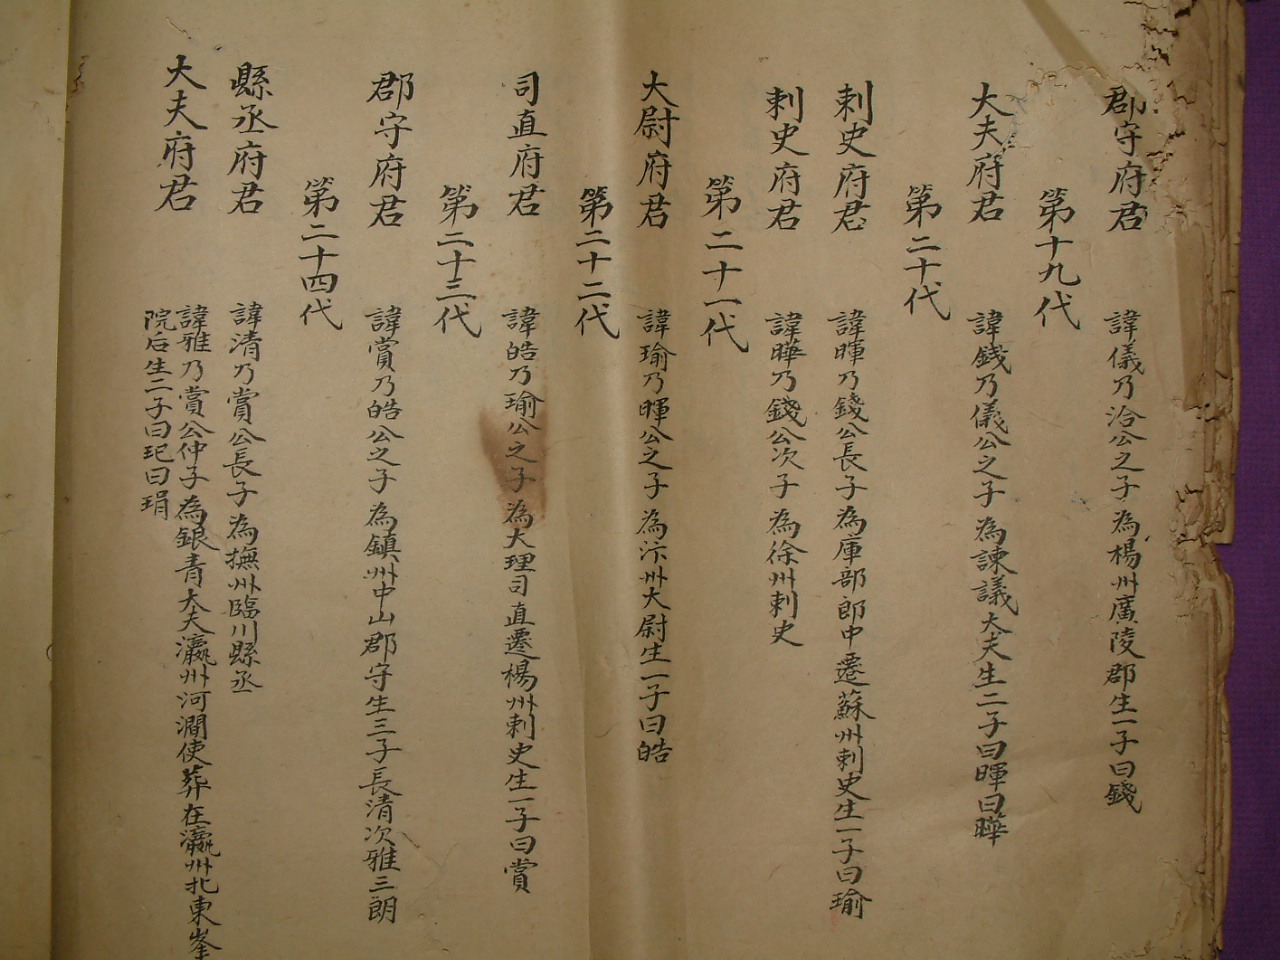 郡守府君　諱儀乃洽公之子為楊州廣陵郡生一子曰錢
第十九代
大夫府君　諱錢乃儀公之子為諫議大夫生二子曰暉曰曄
第二十代
刺史府君　諱暉乃錢公長子為庫部郎中遷蘇州刺史生一子曰瑜
刺史府君　諱曄乃錢公次子為徐州刺史
第二十一代
大尉府君　諱瑜乃暉公之子為汴州大尉生一子曰皓
第二十二代
司直府君　諱皓乃瑜公之子為大理司直遷楊州刺史生一子曰賞
第二十三代
郡守府君　諱賞乃皓公之子為鎮州中山郡守生三子長清次雅三朗
第二十四代
縣丞府君　諱清乃賞公長子為撫州臨川縣丞
大夫府君　諱雅乃賞公仲子為銀青大夫瀛州河澗使葬在瀛州北東峯
院后生二子曰玘曰琄